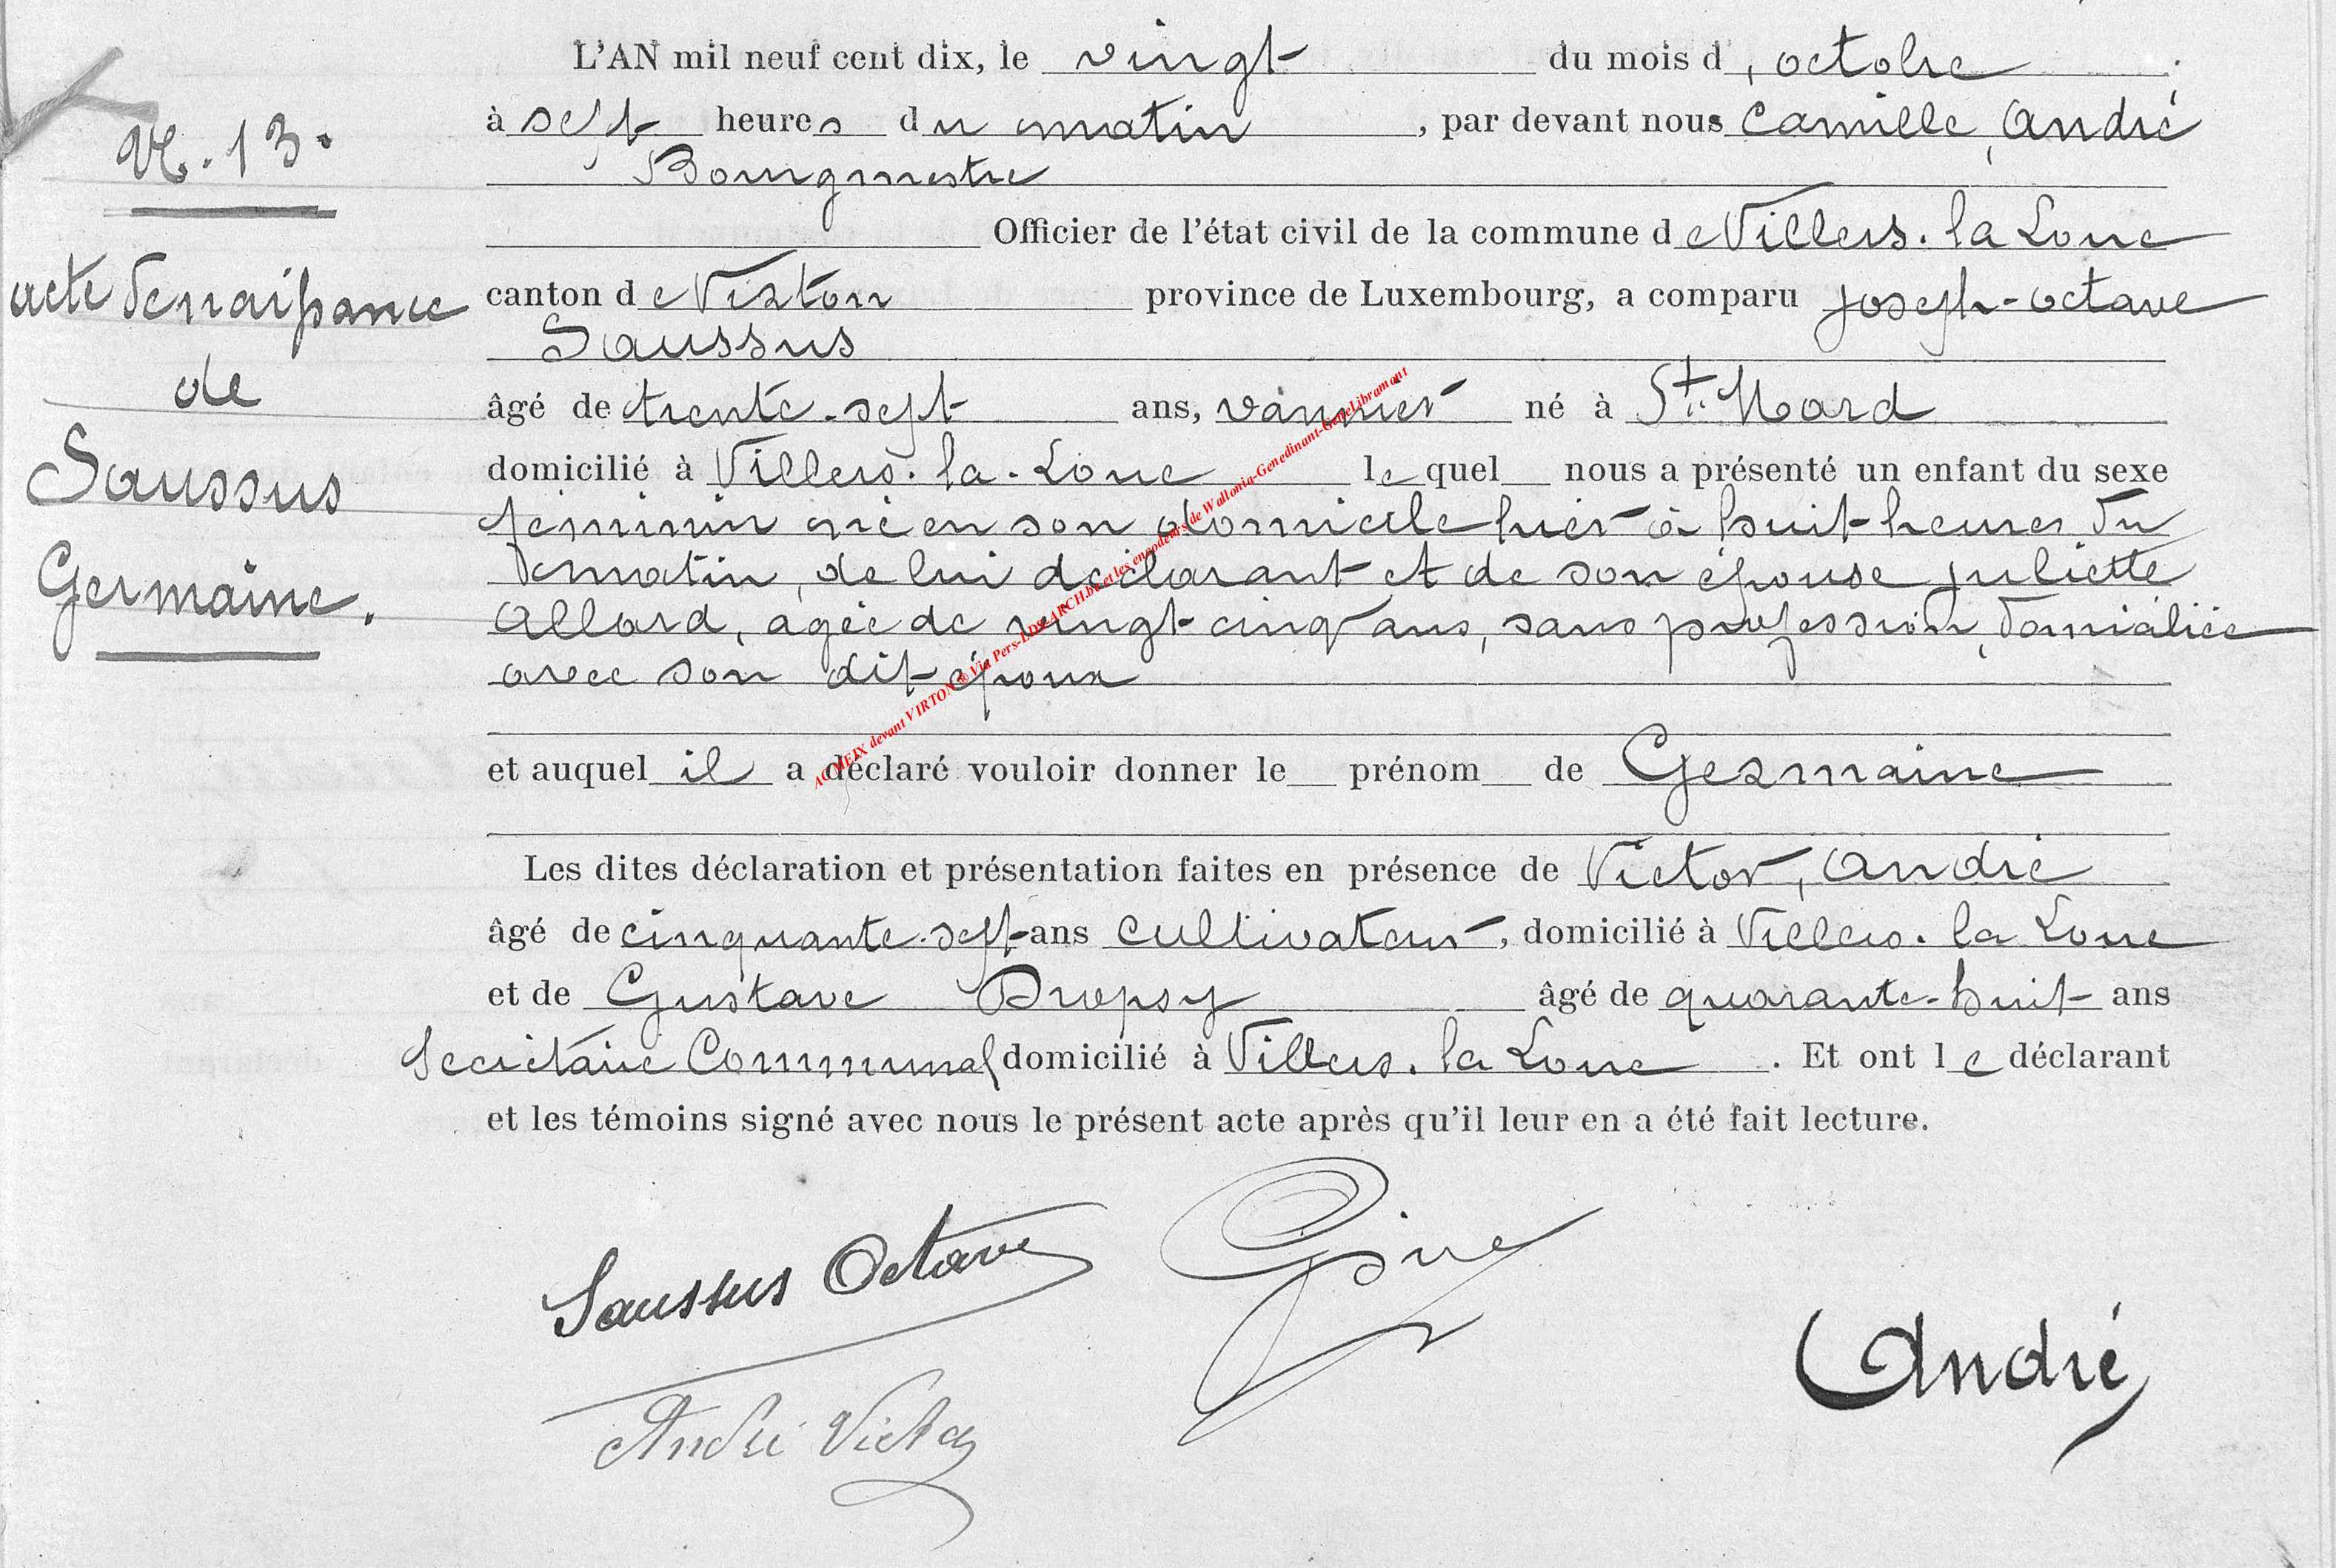 N. 13.
acte de naissance
de
Saussus
Germaine.
L'AN mil neuf cent dix, le vingt du mois d'octobre
à sept heures du matin, par devant nous Camille, André
Bourgmestre
Officier de l'état civil de la commune de Villers-la Loue
canton de Virton province de Luxembourg, a comparu Joseph-octave
Saussus
âgé de trente-sept ans, vannier né à St. Mard
domicilié à Villers-la-Loue lequel nous a présenté un enfant du sexe
féminin né en son domicile hier à huit heures du
matin, de lui déclarant et de son épouse Juliette
Allard, agée de vingt-cinq ans, sans profession, domiciliée
avec son dit époux
et auquel il a déclaré vouloir donner le prénom de Germaine
Les dites déclaration et présentation faites en présence de Victor, André
âgé de cinquante-sept ans cultivateur, domicilié à Villers-la Loue
et de Gustave Dropsy âgé de quarante-huit ans
Secrétaire Communal domicilié à Villers-la Loue. Et ont le déclarant
et les témoins signé avec nous le présent acte après qu'il leur en a été fait lecture.
Saussus Octave
André Victor
André
AC MEIX devant VIRTON © Via Pers-LDS-ARCH.be et les encodeurs de Wallonia-Genedinant-GeneLibramont